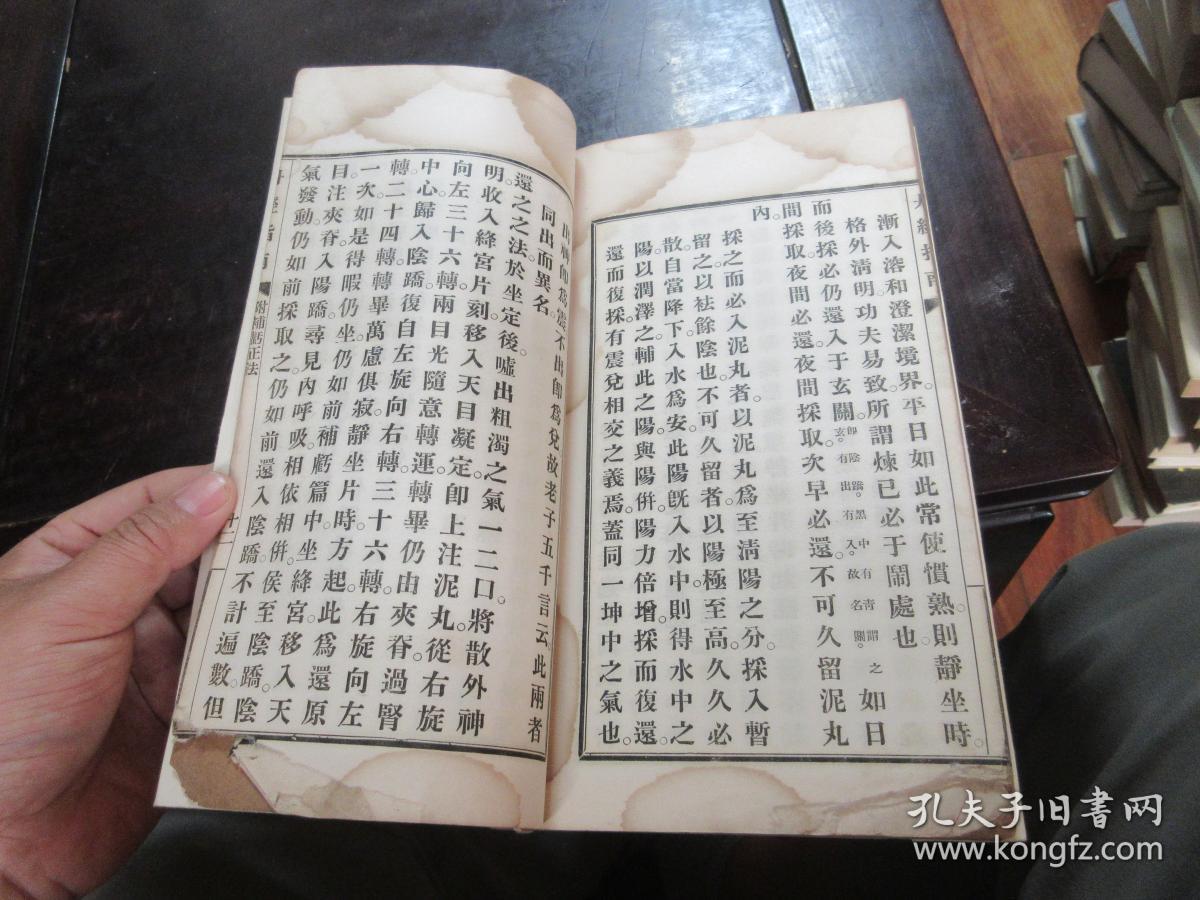 漸入溶和澄潔境界。平日如此常使慣熟。則靜坐時。
格外清明。功夫易致。所謂煉已必于鬧處也。
而後採必仍還入于玄關。卽陰蹻。黑中有靑謂之玄。有出有入。故名關。如日
間採取。夜間必還。夜間採取。次早必還。不可久留泥丸
內。
採之而必入泥丸者。以泥丸爲至淸陽之分。採入暫
留之以袪餘陰也。不可久留者。以陽極至高。久久必
散。自當降下。入水爲安。此陽旣入水中。則得水中之
陽以潤澤之。輔此之陽。與陽倂。陽力倍增。採而復還。
還而復採。有震兌相交之義焉。蓋同一坤中之氣也。
出卽爲震。不出卽爲兌。故老子五千言云。此兩者
同出而異名。
還之之法。於坐定後。噓出粗濁之氣一二口。將散外神
明。收入絳宮片刻。移入天目凝定。卽上注泥丸。從右旋
向左三十六轉。兩目光隨意轉運。轉畢仍由夾脊。過腎
中心。歸入陰蹻。復自左旋向右轉三十六轉。右旋向左
轉二十四轉。轉畢萬慮俱寂。靜坐片時。方起。此爲還原
一次。如是得暇仍坐。仍如前補虧篇中。坐絳宮。移入天
目。注夾脊。入陽蹻。尋見內呼吸。相依相倂。俟至陰蹻。陰
氣發動。仍如前採取之。仍如前還入陰蹻。不計遍數。但
附補虧正法
十二
孔夫子旧书网
www.kongfz.com